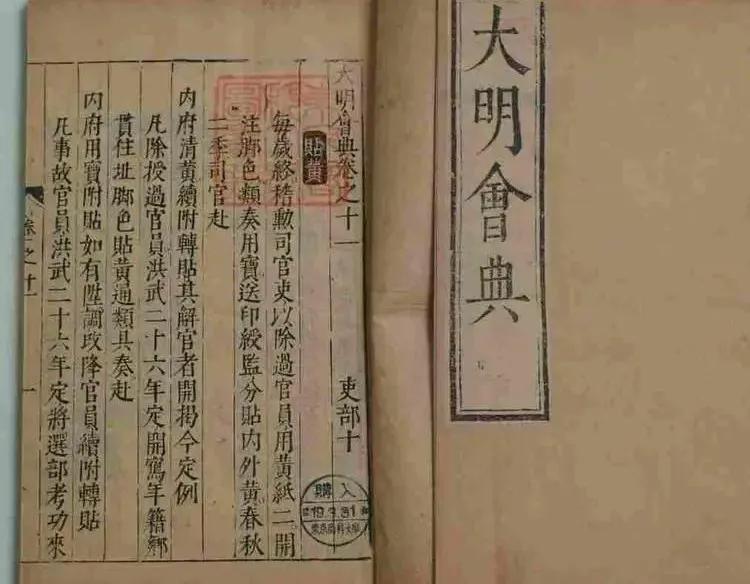 大明會典
大明會典卷之十一 吏部十
貼黃
每歲終稽勳司官吏以除過官員用黃紙二開
注脚色類奏用寶送印綬監分貼內外黃春秋
二季司官赴
內府清黃續附轉貼其解官者開揭今定例
凡除授過官員洪武二十六年定開寫年籍鄉
貫住址脚色貼黃通類具奏赴
內府用寶附貼如有陞調改降官員續附轉貼
凡事故官員洪武二十六年定將選部考功來
卷之十一 一
購入